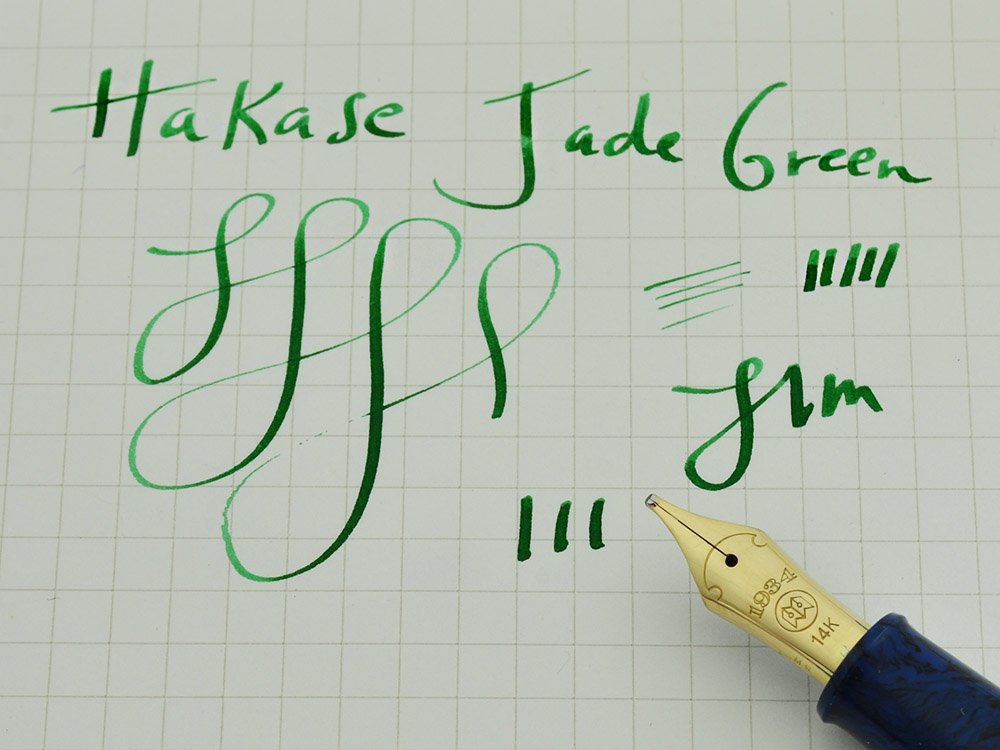 Hakase Jade Green
1934
14K